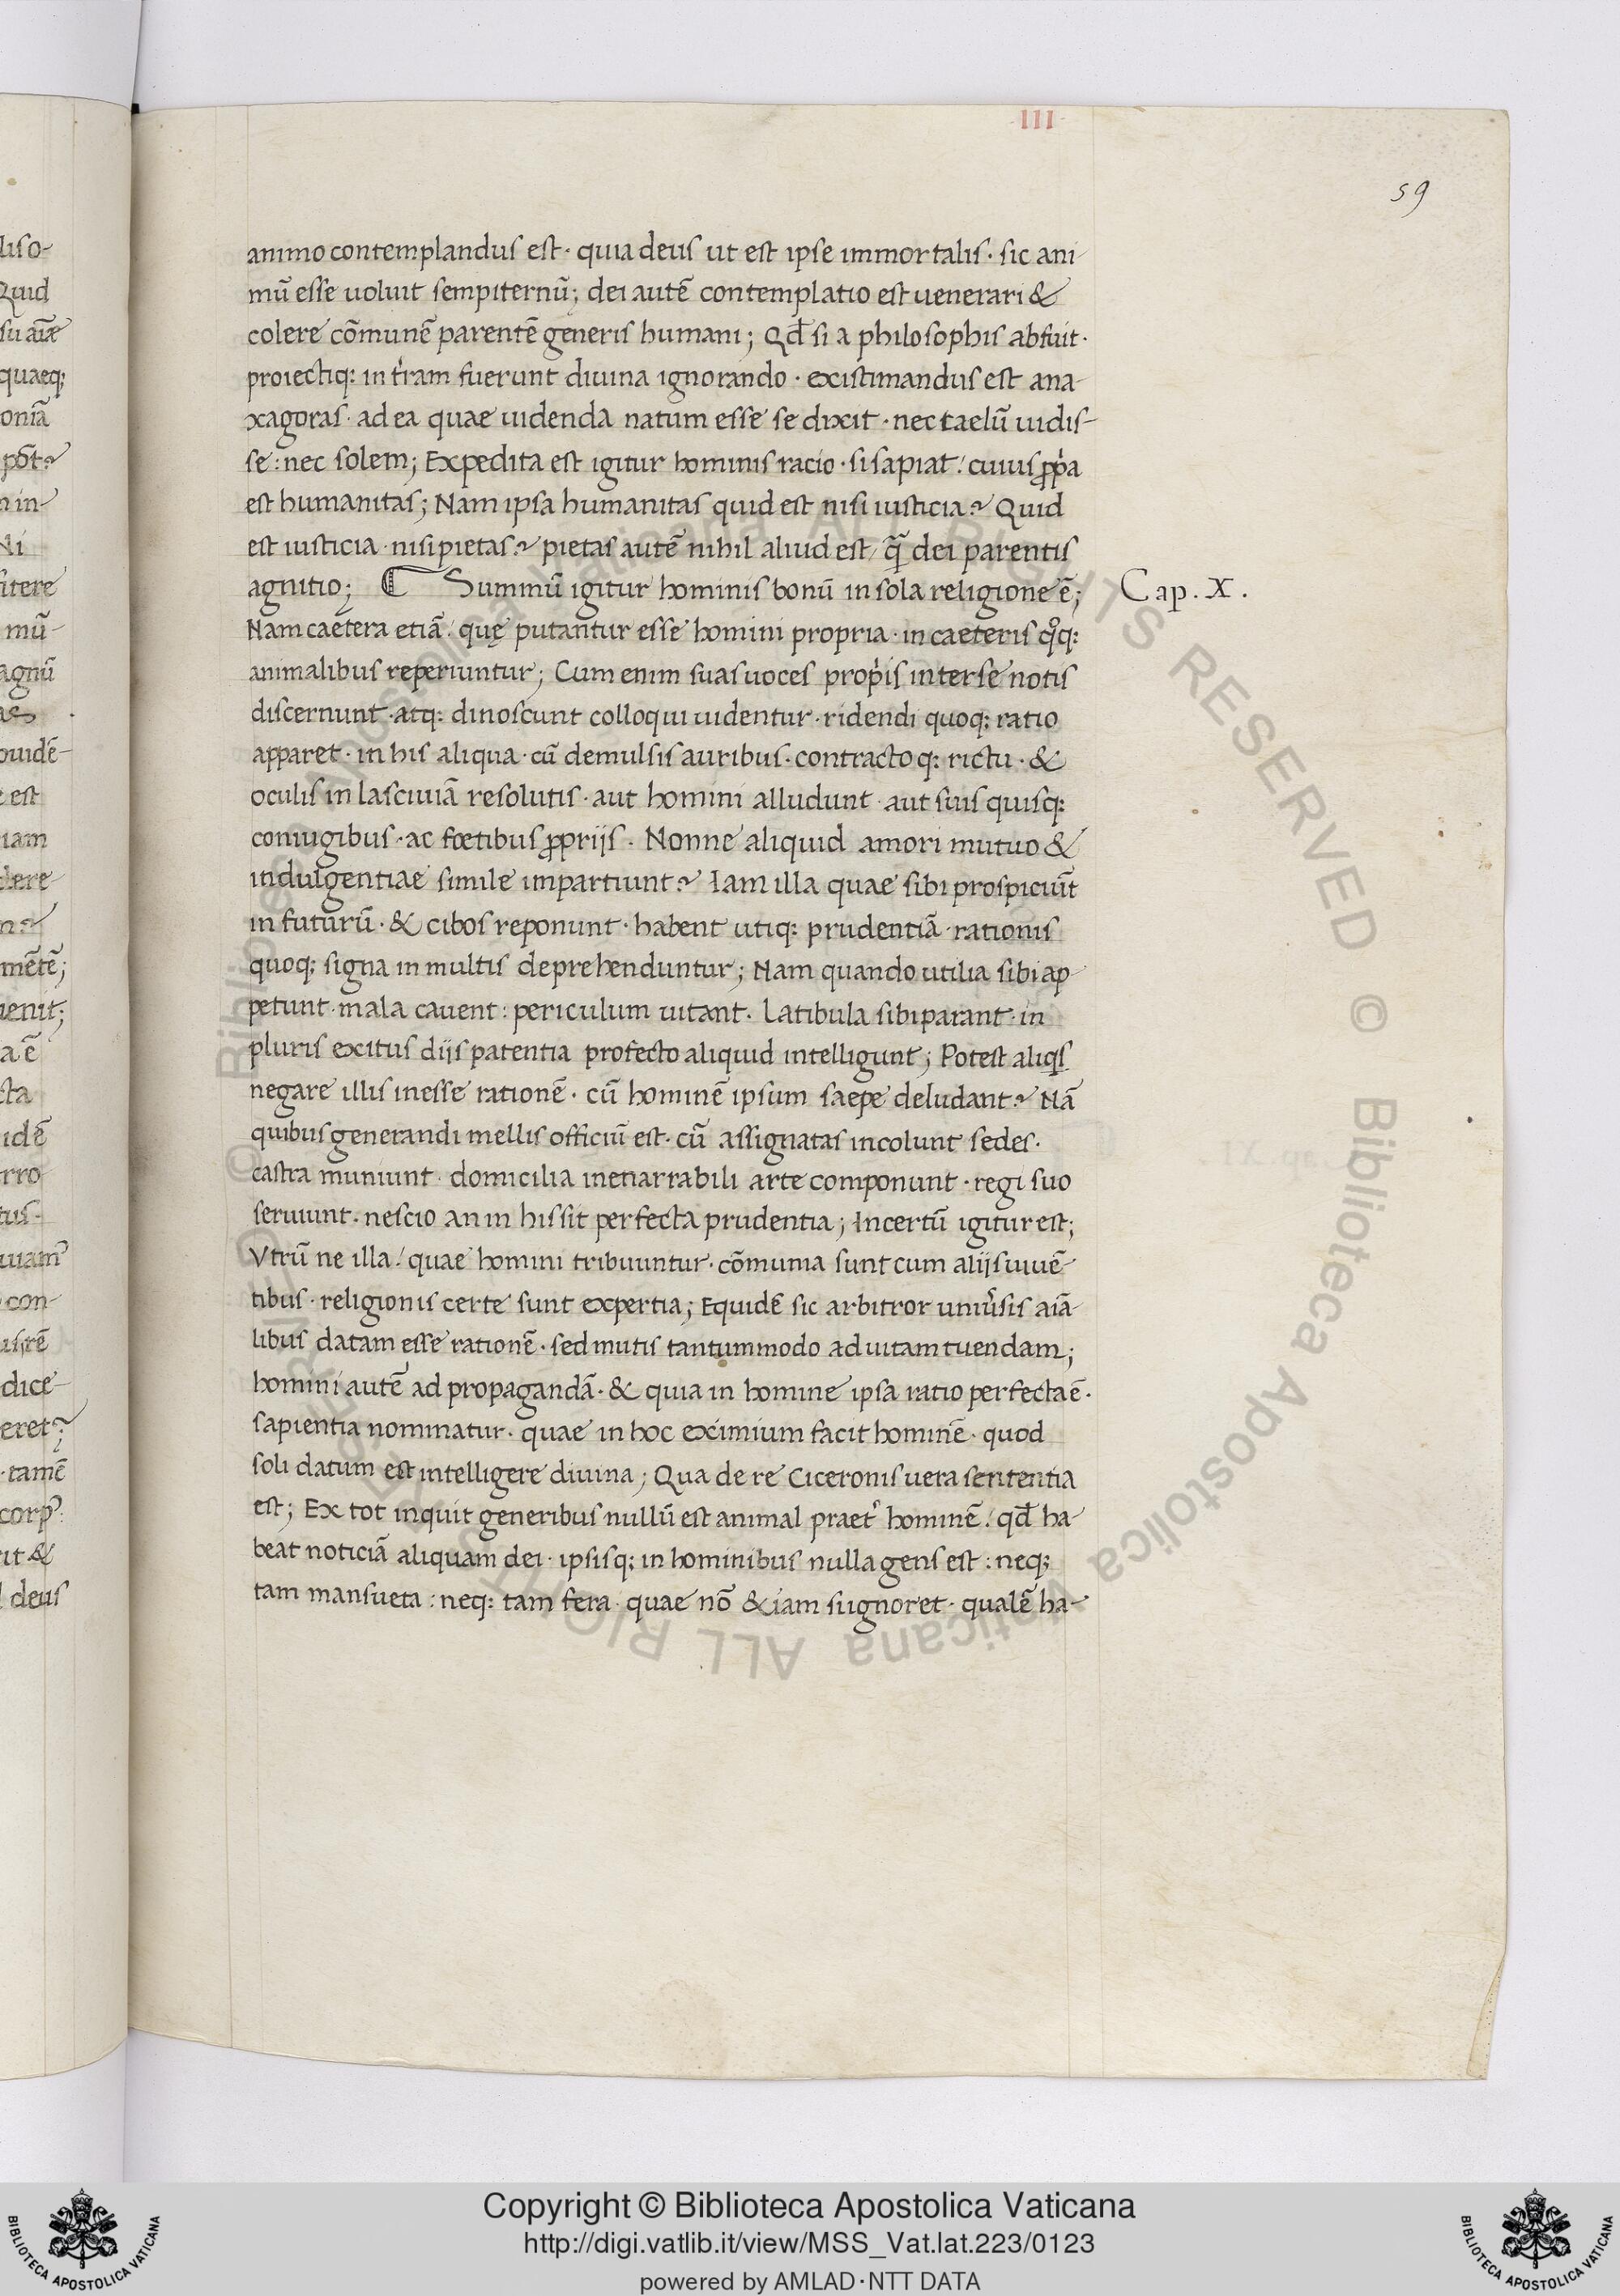 III
59
animo contemplandus est· quia deus ut est ipse immortalis· sic ani
mū esse uoluit sempiternū; dei autē contemplatio est uenerari &
colere cōmunē parentē generis humani; Qđ si a philosophis abfuit·
proiectiq: in t̄ram fuerunt diuina ignorando· existimandus est ana
xagoras· ad ea quae uidenda natum esse se dixit· nec caelū uidis-
se: nec solem; Expedita est igitur hominis racio· si sapiat! cuius ꝓp̄a
est humanitas; Nam ipsa humanitas quid est nisi iusticia? Quid
est iusticia· nisi pietas? pietas autē nihil aliud est/ q̄ꝫ dei parentis
agnitio; ₵ Summū igitur hominis bonū in sola religione ē;
Cap. X.
Nam caetera etiā! quę putantur esse homini propria· in caeteris q͛q:
animalibus reperiuntur; Cum enim suas uoces prop̄is inter se notis
discernunt· atq: dinoscunt colloqui uidentur· ridendi quoq: ratio
apparet· in his aliqua· cū demulsis auribus· contractoq: rictu· &
oculis in lasciuiā resolutis· aut homini alludunt· aut suis quisq:
coniugibus· ac fœtibus ꝓprijs· Nonne aliquid amori mutuo &
indulgentiae simile impartiunt? Iam illa quae sibi prospiciūt
in futurū· & cibos reponunt· habent utiq: prudentiā· rationis
quoq; signa in multis deprehenduntur; Nam quando utilia sibi ap
petunt· mala cauent: periculum uitant· Latibula sibi parant· in
pluris exitus dijs patentia profecto aliquid intelligunt; Potest aliqs
negare illis inesse rationē· cū hominē ipsum saepe deludant? Nā
quibus generandi mellis officiū est· cū assignatas incolunt sedes·
castra muniunt· domicilia inenarrabili arte componunt· regi suo
seruiunt· nescio an in his sit perfecta prudentia; Incertū igitur est;
Vtrū ne illa! quae homini tribuuntur· cōmunia sunt cum alijs uiuē-
tibus· religionis certe sunt expertia; Equidē sic arbitror uniu̓sis aīā
libus datam esse rationē· sed mutis tantummodo ad uitam tuendam;
homini autē ad propagandā· & quia in homine ipsa ratio perfecta ē·
sapientia nominatur· quae in hoc eximium facit hominē· quod
soli datum est intelligere diuina; Qua de re Ciceronis uera sententia
est; Ex tot inquit generibus nullū est animal praet̓ hominē! qđ ha
beat noticiā aliquam dei· ipsisq; in hominibus nulla gens est: neq;
tam mansueta: neq: tam fera· quae nō &iam si ignoret· qualē ha-
Copyright © Biblioteca Apostolica Vaticana
http://digi.vatlib.it/view/MSS_Vat.lat.223/0123
powered by AMLAD·NTT DATA